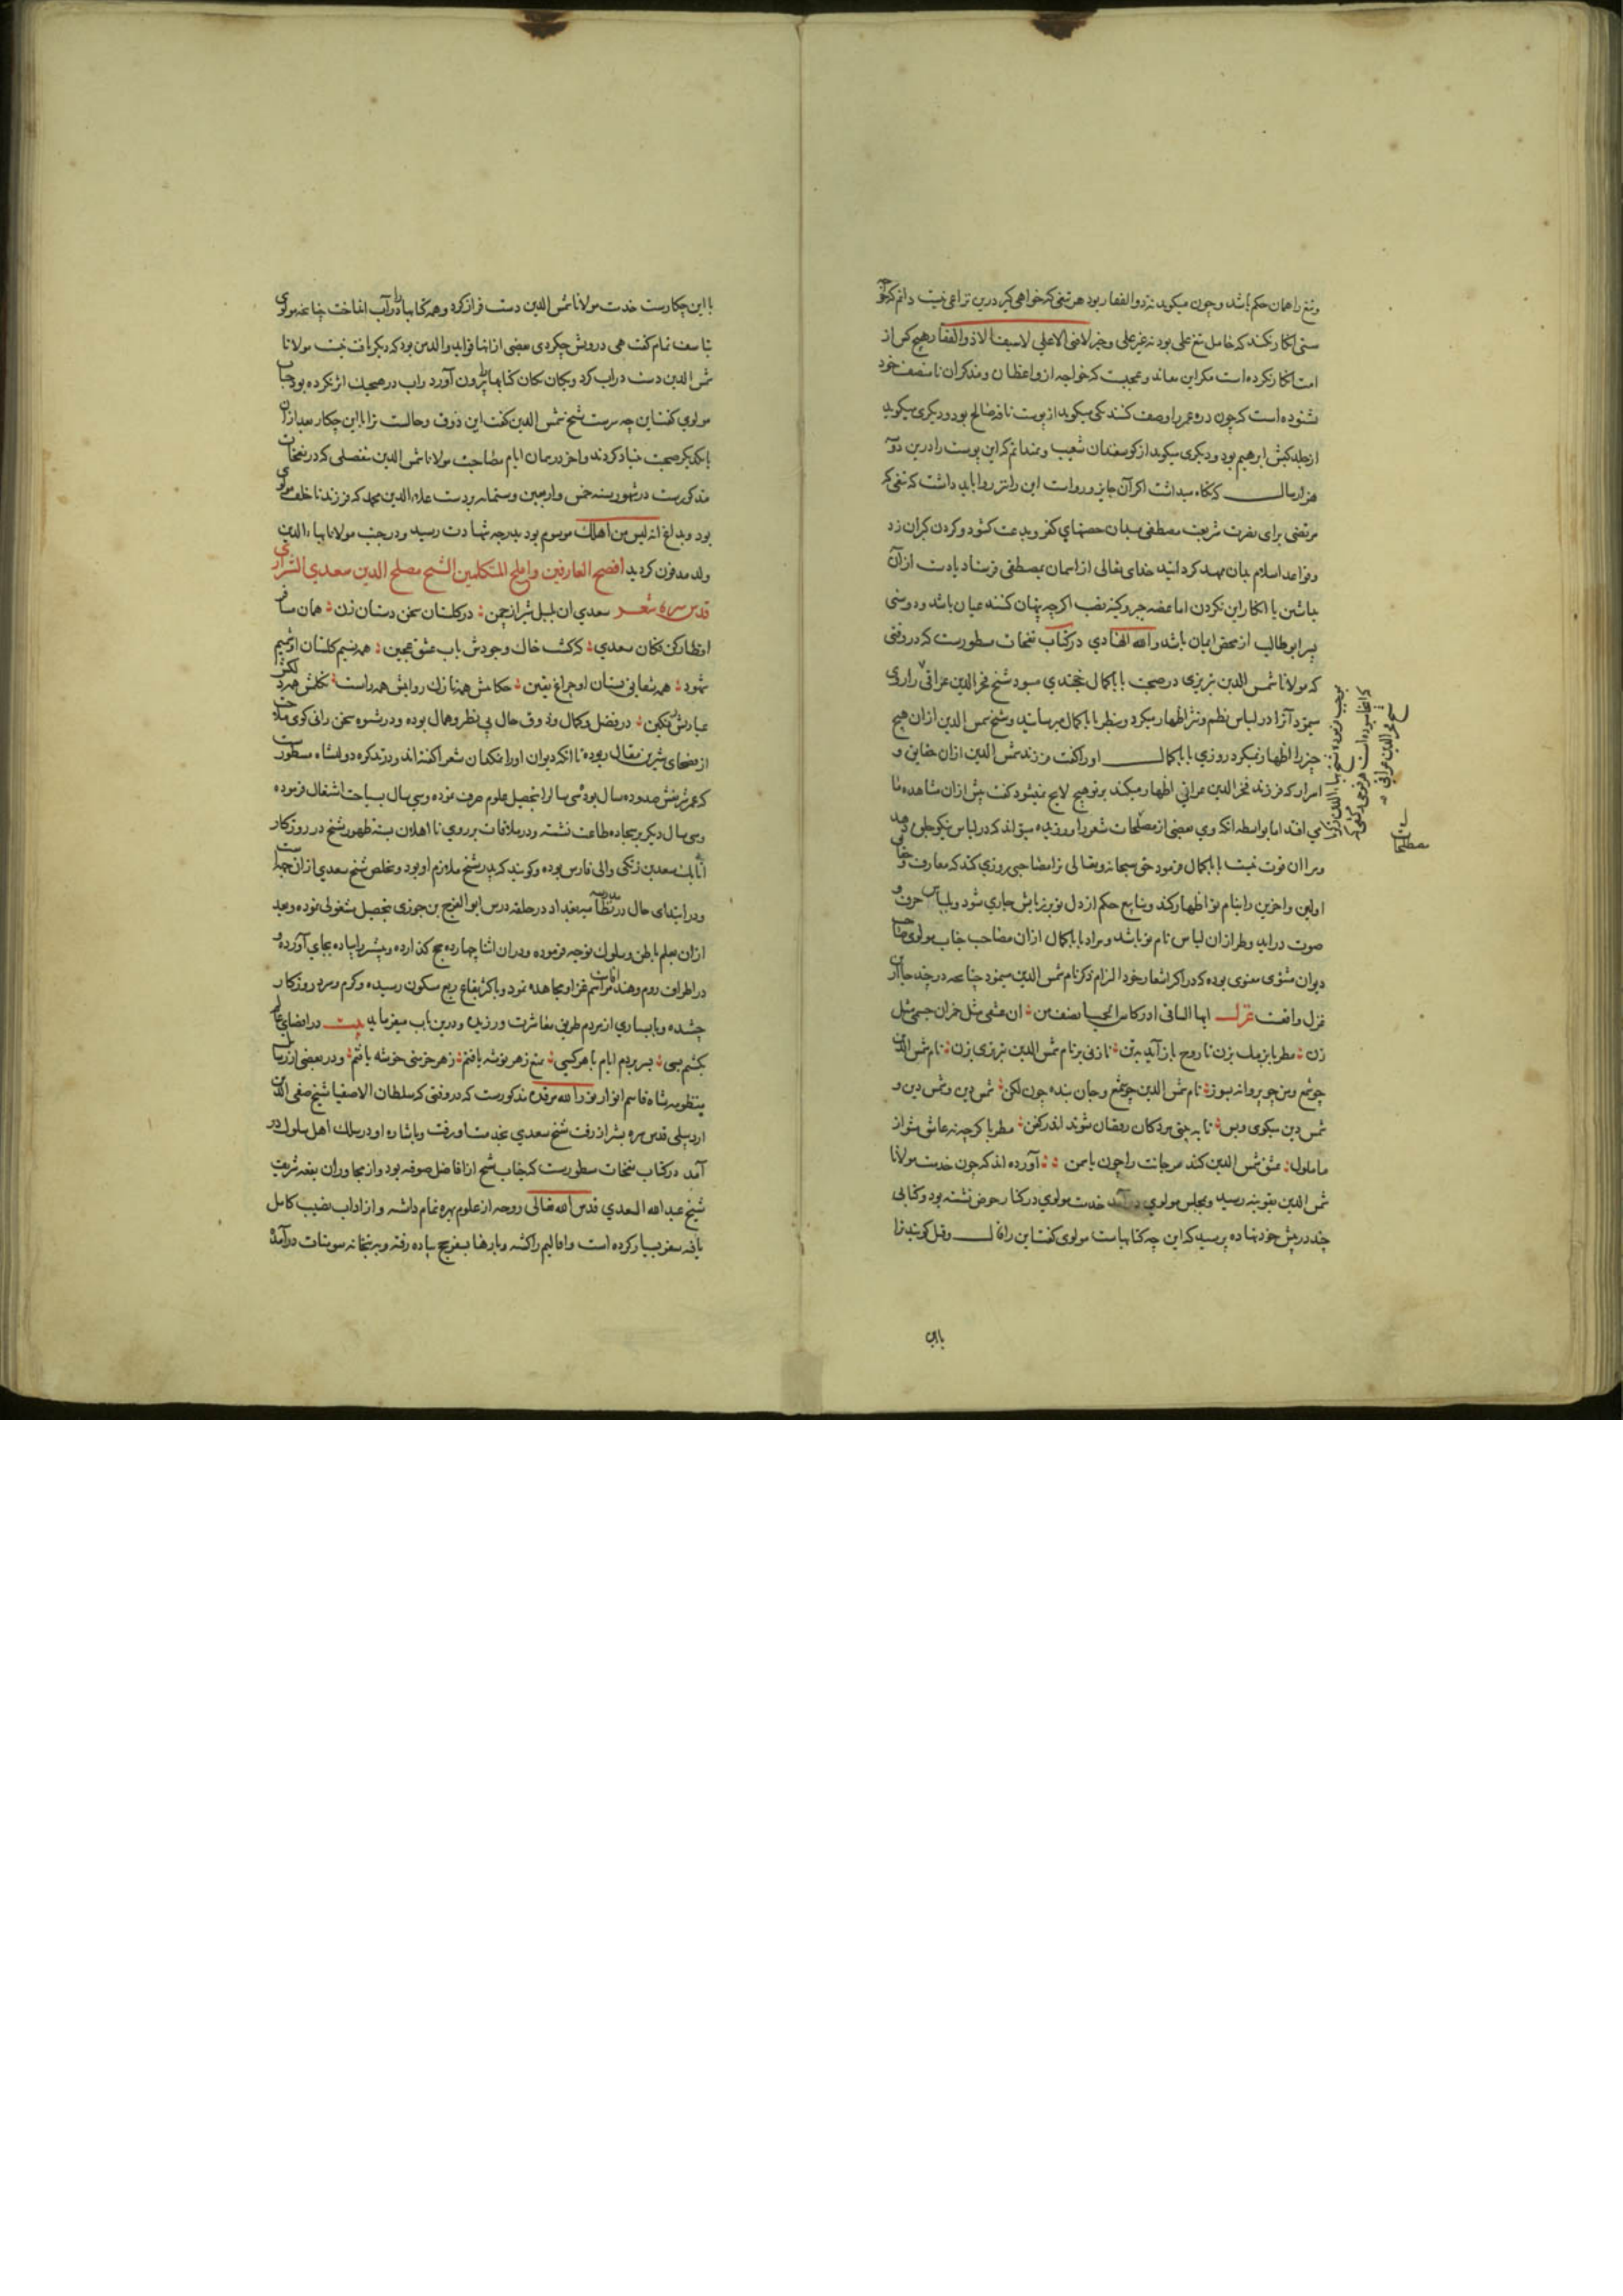 وتیغ را همان حکم باشد و چون میکوید نه ذو الفقار بود هر تیغی که خواهی کیر درین نزاعی نیست دانم که
سنی انکار نکند که حامل تیغ علی بود نه غیر علی و خبر لا فتی الا علی لا سیف الا ذو الفقار هیچ کس از
امت انکار نکرده است مکر این معاند و عجبست که خواجه از واعظان و مذکران نامنصف خود
شنوده است که چون دره عمر را وصف کنند یکی میکوید از پوست ناقه صالح بود و دیکری میکوید
از جلد کبش ابرهیم بود و دیکری میکوید از کوسفندان شعیب و نمیدانم که این پوست را درین دو
هزار سال که نکاه میداشت اکر آن جایز و رواست این را نیز روا باید داشت که تیغی که
مرتضی برای نصرت شریعت مصطفی بدان حصنهای کفر و بدعت کشود و کردن کبران زد
وقواعد اسلام بدان ممهد کردانید خدای تعالی از آسمان بمصطفی فرستاد یا دست از آن
بداشتن یا انکار این نکردن اما عضه جبر و کینه نصب اکرچه پنهان کنند عیان باشد و دوستی
پسر ابو طالب از محض ایمان باشد والله الهادی در کتاب نفحات مسطورست که در وقتی
که مولانا شمس الدین تبریزی در صحبت بابا کمال خجندی میبود شیخ فخر الدین عراقی را روی
مینمود آنرا در لباس نظم و نثر اظهار میکرد و بنظر بابا کمال میرسانید و شیخ شمس الدین ازان هیچ
چیز را اظهار نمیکرد روزی بابا کمال او را کفت فرزند شمس الدین ازان حقایق و
اسرار که فرزند فخر الدین عراقی اظهار میکند بر تو هیچ لایح نمیشود کفت پیش ازان مشاهده
می افتد اما بواسطه آنکه وی بعضی از مصطلحات شعر را ورزیده میتواند که در لباس نیکو جلوه دهد
ومرا ان قوت نیست بابا کمال فرمود حق سبحانه وتعالی ترا مصاحبی روزی کند که معارف و حقایق
اولین و آخرین را بنام تو اظهار کند و ینابیع حکم از دل تو بر زبانش جاری شود و بلباس حرف و
صوت دراید و طراز ان لباس نام تو باشد و مراد بابا کمال ازان مصاحب جناب مولوی صاحب
دیوان مثنوی معنوی بوده که در اکثر اشعار خود التزام ذکر نام شمس الدین مینمود چنانچه در چند جا ازین
غزل واقعست غزل ایها الساقی ادر کاس الحیا نصف من ؛ ان عشقی مثل خمران جسمی مثل
دن ؛ مطربا نرمک بزن تا روح باز آید بتن ؛ تا زنی بر نام شمس الدین تبریزی بزن ؛ نام شمس الدین
چو شمع و من چو پروانه بسوز ؛ نام شمس الدین چو شمع و جان بنده چون لکن ؛ شمس دین و شمس دین و
شمس دین میکوی و بس ؛ تا به بینی مردکان رقصان شوند اندر کفن ؛ مطربا کرچه نه عاشق مشو از
ما ملول ؛ عشق شمس الدین کند مر جانت را چون یاسمن ؛ ؛ آورده اند که چون خدمت مولانا
شمس الدین بقونیه رسید و بمجلس مولوی درآمد خدمت مولوی در کنار حوض نشسته بود و کتابی
چند در پیش خود نهاده پرسید که این چه کتابهاست مولوی کفت این را قال و قیل کویند ترا
بااین
با این چکارست خدمت مولانا شمس الدین دست فراز کرد و همه کتابها را در آب انداخت چنانچه مولوی
بتاسف تمام کفت هی درویش چکردی بعضی از انها فواید والدین بود که دیکر یافت نیست مولانا
شمس الدین دست در اب کرد و یکان یکان کتابها را بیرون آورد و اب در هیچیک اثر نکرده بود جناب
مولوی کفت این چه سرست شیخ شمس الدین کفت این ذوق و حالست ترا با این چکار بعد ازان
با یکدیکر صحبت بنیاد کردند و اخر در همان ایام مصاحبت مولانا شمس الدین بتفصیلی که در نفحات
مذکورست در شهور سنه خمس واربعین وستمایه بردست علاء الدین محمد که فرزند ناخلف مولوی
بود وبداغ انه لیس من اهلک موسوم بود بدرجه شهادت رسید و در جنب مولانا بهاء الدین
ولد مدفون کردید افصح العارفین واملح المتکلمین الشیخ مصلح الدین سعدی الشیرازی
قدس سره شعر سعدی ان بلبل شیراز چمن ؛ در کلستان سخن دستان زن ؛ همان مسافر
اقطار کن فکان سعدی ؛ که کشت خاک وجودش باب عشق عجین ؛ همه نسیم کلستان از شمیم
شهود ؛ همه شعاع بستان او چراغ یقین ؛ حکایتش همه نازک روایتش همه راست ؛
عبارتش رنکین ؛ در فضل و کمال و ذوق حال بی نظر و همال بوده و در شیوه سخن رانی کوی ملاحت
از فصحای شیرین مقال ربوده تا انکه دیوان او را نمکدان شعرا کفته اند و در تذکره دولتشاه مسطورست
که عمر شریفش صد و ده سال بود سی سال را بتحصیل علوم صرف نموده وسی سال بسیاحت اشتغال فرموده
وسی سال دیکر بر سجاده طاعت نشسته و در ملاقات بر روی نا اهلان بسته ظهور شیخ در روزکار
اتابک سعد بن زنکی والی فارس بوده و کویند که پدر شیخ ملازم او بود و تخلص شیخ سعدی ازان جهتست
ودر ابتدای حال در مدرسه نظامیه بغداد در حلقه درس ابو الفرج بن جوزی بتحصیل مشغولی نموده وبعد
ازان بعلم باطن و سلوک توجه فرموده ودران اثنا چهارده حج کذارده و بیشتر را پیاده بجای آورده و
در اطراف روم وهند اقامت مراسم غزا و مجاهده نمود و باکثر بقاع ربع مسکون رسیده و کرم و سرد روزکار
چشیده و با بسیاری از مردم طریق معاشرت ورزیده و درین باب میفرماید بیت در اقصای عالم
بکشتم بسی ؛ بسر بردم ایام با هر کسی ؛ تمتع ز هر توشه یافتم ؛ ز هر خرمنی خوشه یافتم ؛ ودر بعضی از رسایل
منظومه شاه قاسم انوار نور الله مرقده مذکورست که در وقتی که سلطان الاصفیا شیخ صفی الدین
اردبیلی قدس سره بشیراز رفت شیخ سعدی بخدمت او رفت وباشاره او در سلک اهل سلوک در
آمد در کتاب نفحات مسطورست که جناب شیخ از افاضل صوفیه بود واز مجاوران بقعه شریف
شیخ عبد الله السعدی قدس الله تعالی روحه از علوم بهره تمام داشته و از اداب نصیب کامل
یافته سفر بسیار کرده است و اقالیم را کشته و بارها بسفر حج پیاده رفته و به بتخانه سومنات درآمده